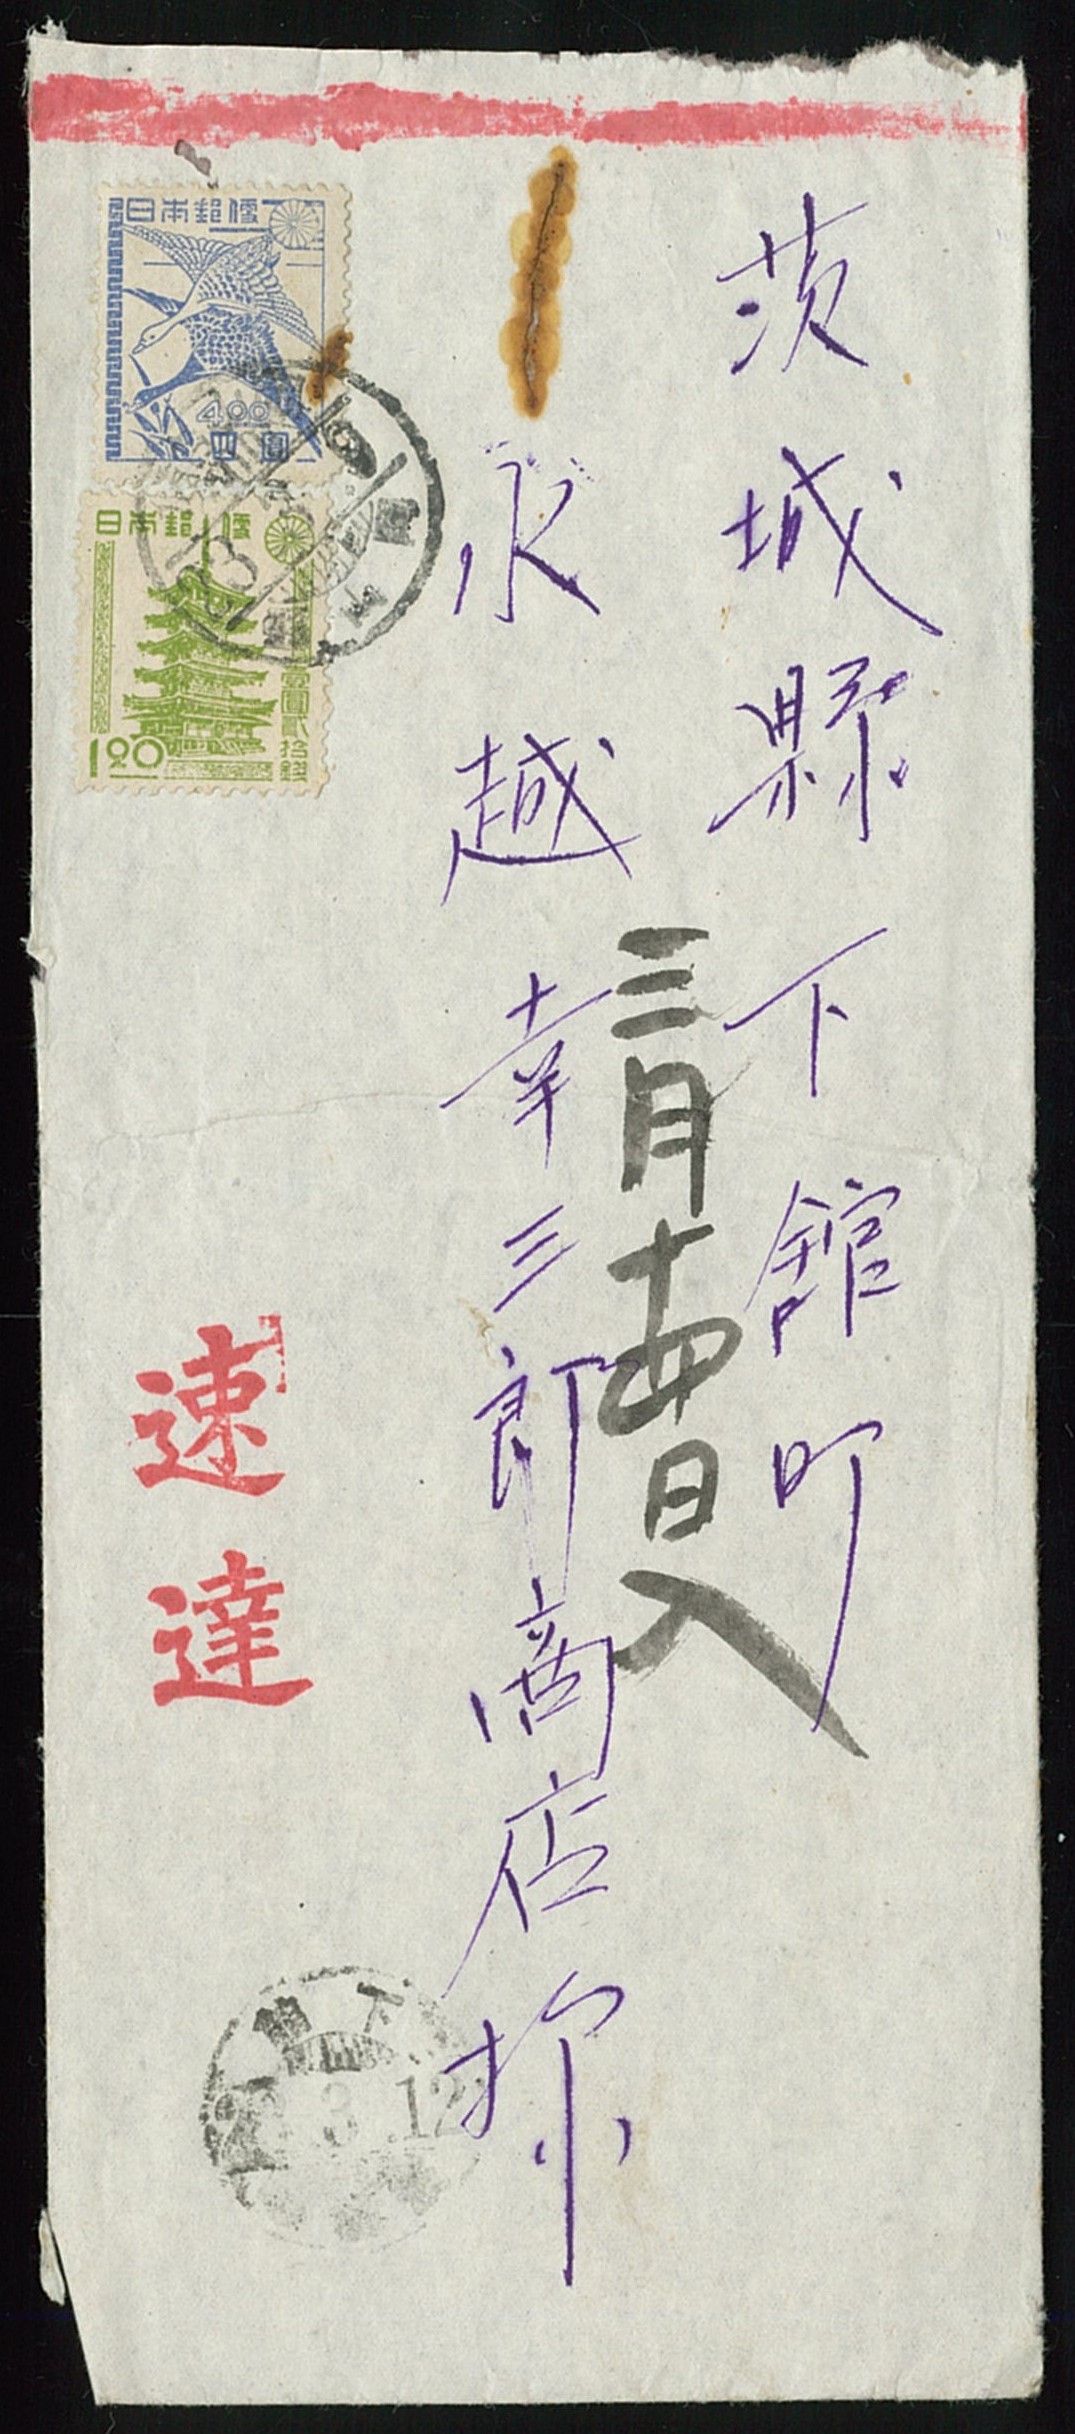 茨城縣下館町
三月十四日入
永越幸三郎商店様
日本郵便
4.00
四圓
日本郵便
壹圓貳拾錢
1.20
速達
下館
3.12